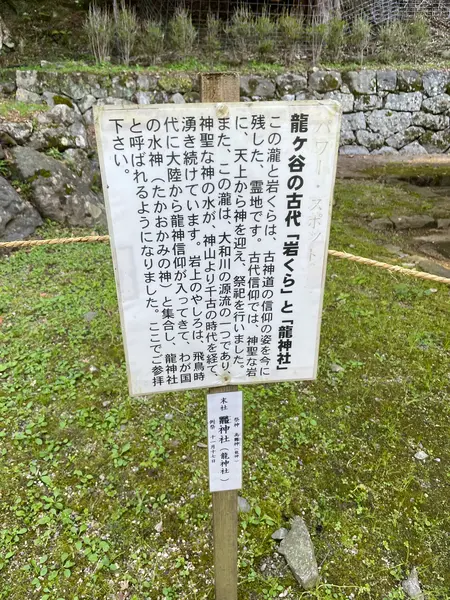 パワースポット
龍ヶ谷の古代「岩くら」と「龍神社」
この瀧と岩くらは、古神道の信仰の姿を今に
残した、霊地です。古代信仰では、神聖な岩
に、天上から神を迎え、祭祀を行いました。
また、この瀧は、大和川の源流の一つであり、
神聖な神の水が、神山より千古の時代を経て、
湧き続けています。岩上のやしろは、飛鳥時
代に大陸から龍神信仰が入ってきて、わが国
の水神(たかおかみの神)と集合し、龍神社
と呼ばれるようになりました。ここでご参拝
下さい。
祭神
末社 龗神社(龍神社)
例祭 十一月十七日